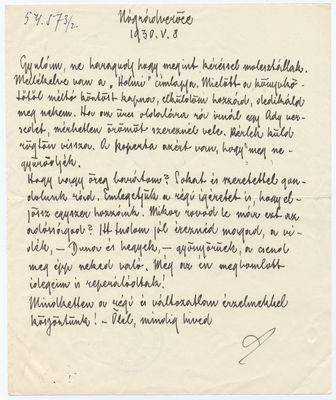 54.573/2
Nógrádverőce
1930.V.8
Gyulám, ne haragudj hogy megint kéréssel molesztállak.
Mellékelve van a "Holmi" címlapja. Mielőtt a könyvkö-
tőtől méltó köntöst kapna, elküldöm hozzád, dedikáld
meg nekem. Ha az üres oldalára rá irnál egy Ady ver-
sedet, mérhetlen örömöt szereznél vele. Kérlek küld
rögtön vissza. A koperta azért van, hogy meg ne-
gyűrődjék.
Hogy vagy öreg barátom? Sokat és szeretettel gon-
dolunk rád. Emlegetjük a régi igéretet is, hogy el-
jössz egyszer hozzánk. Mikor rovod le már ezt az
adósságod? Itt tudom jól éreznéd magad, a vi-
dék, – Duna és hegyek, – gyönyörűek, a csend
meg épp neked való. Még az én megbomlott
idegeim is reperálódtak!
Mindketten a régi és változatlan érzelmekkel
köszöntünk! – Ölel, mindig híved